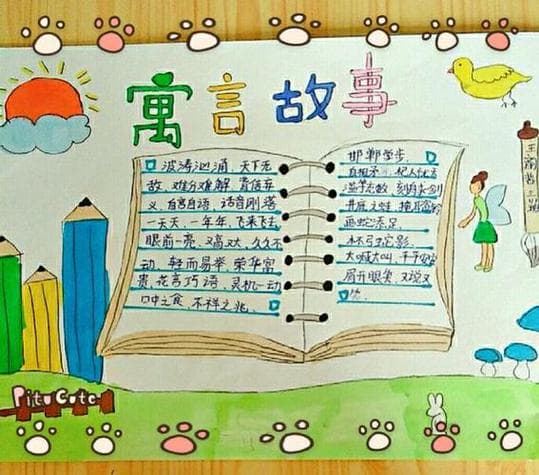 寓言故事
波涛汹涌 天下无
敌 难分难解 背信弃
义 自言自语 话音刚落
一天天 一年年 飞来飞去
眼前一亮 又高又大 久久不
动 轻而易举 荣华富
贵 花言巧语 灵机一动
口中之食 不祥之兆
邯郸学步
自相矛盾 杞人忧天
滥竽充数 刻舟求剑
井底之蛙 掩耳盗铃
画蛇添足
杯弓蛇影
大喊大叫 千千万万
眉开眼笑 又说又
笑
Pitu Cute